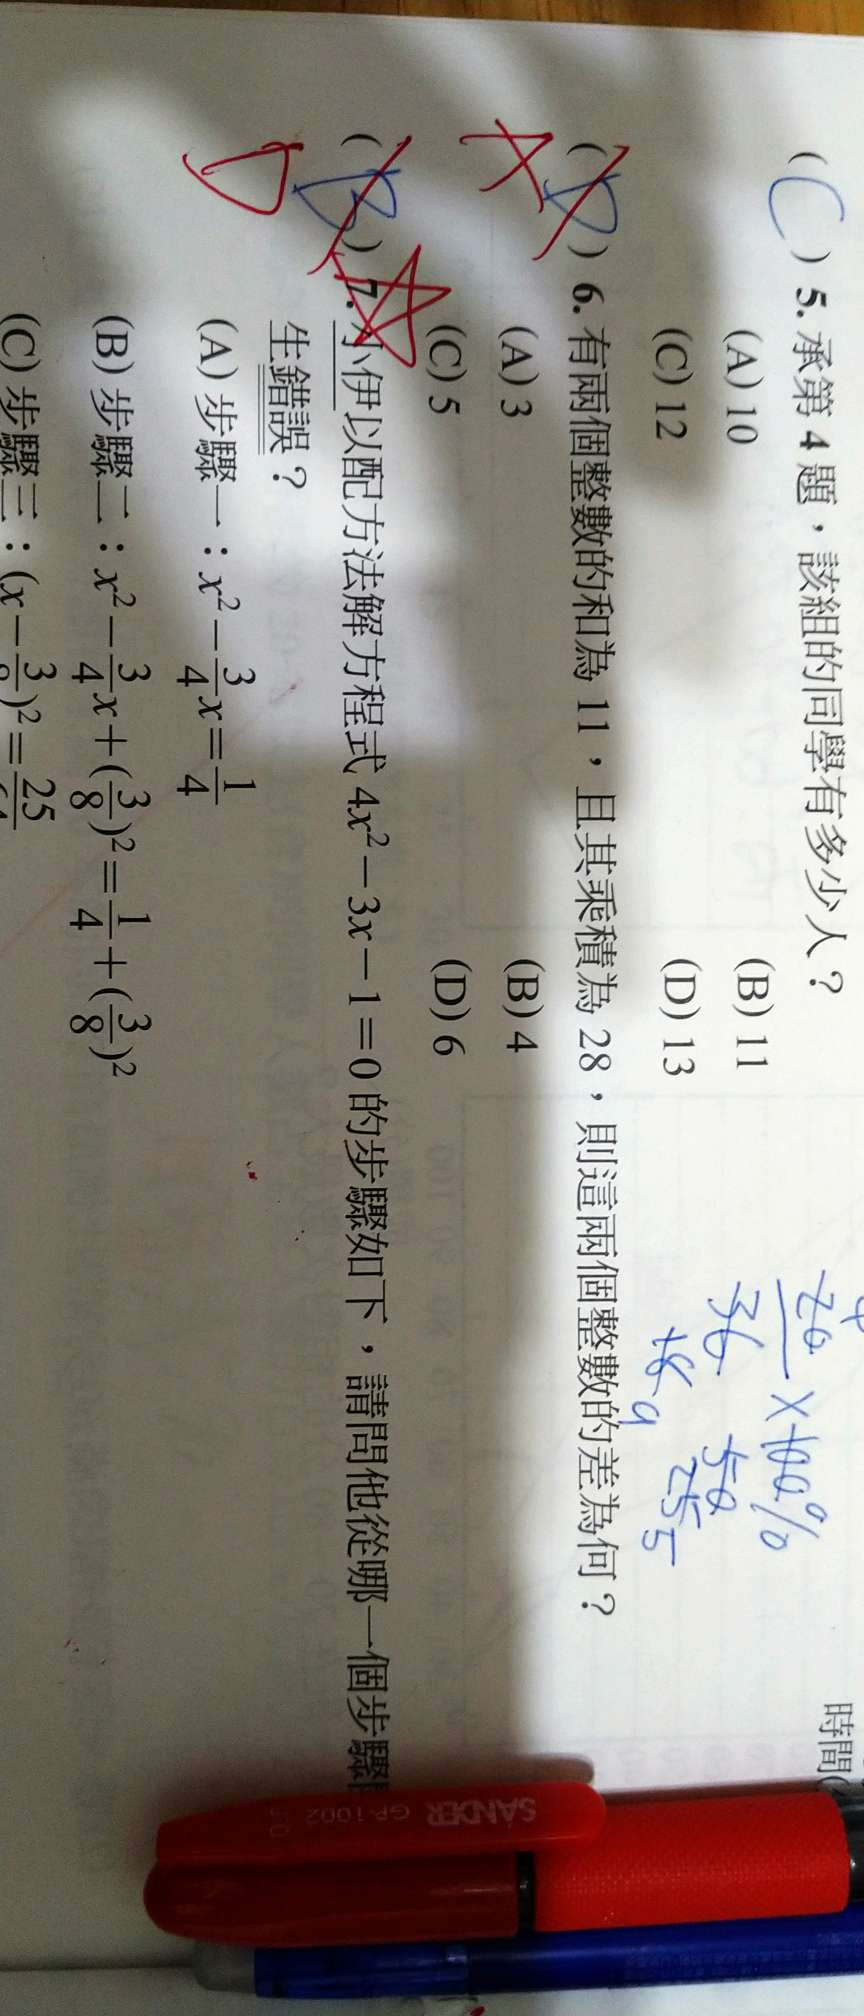 (C) 5. 承第 4 題，該組的同學有多少人？
(A) 10 (B) 11
(C) 12 (D) 13
(D) 6. 有兩個整數的和為 11，且其乘積為 28，則這兩個整數的差為何？
A
(A) 3 (B) 4
(C) 5 (D) 6
(B) 7. 小伊以配方法解方程式 4x²－3x－1＝0 的步驟如下，請問他從哪一個步驟
D
生錯誤？
(A) 步驟一：x²－3/4x＝1/4
(B) 步驟二：x²－3/4x＋(3/8)²＝1/4＋(3/8)²
(C) 步驟三：(x－3/8)²＝25
×100%
36 50
18 9 25 5
時間(
SANDER GP-1002